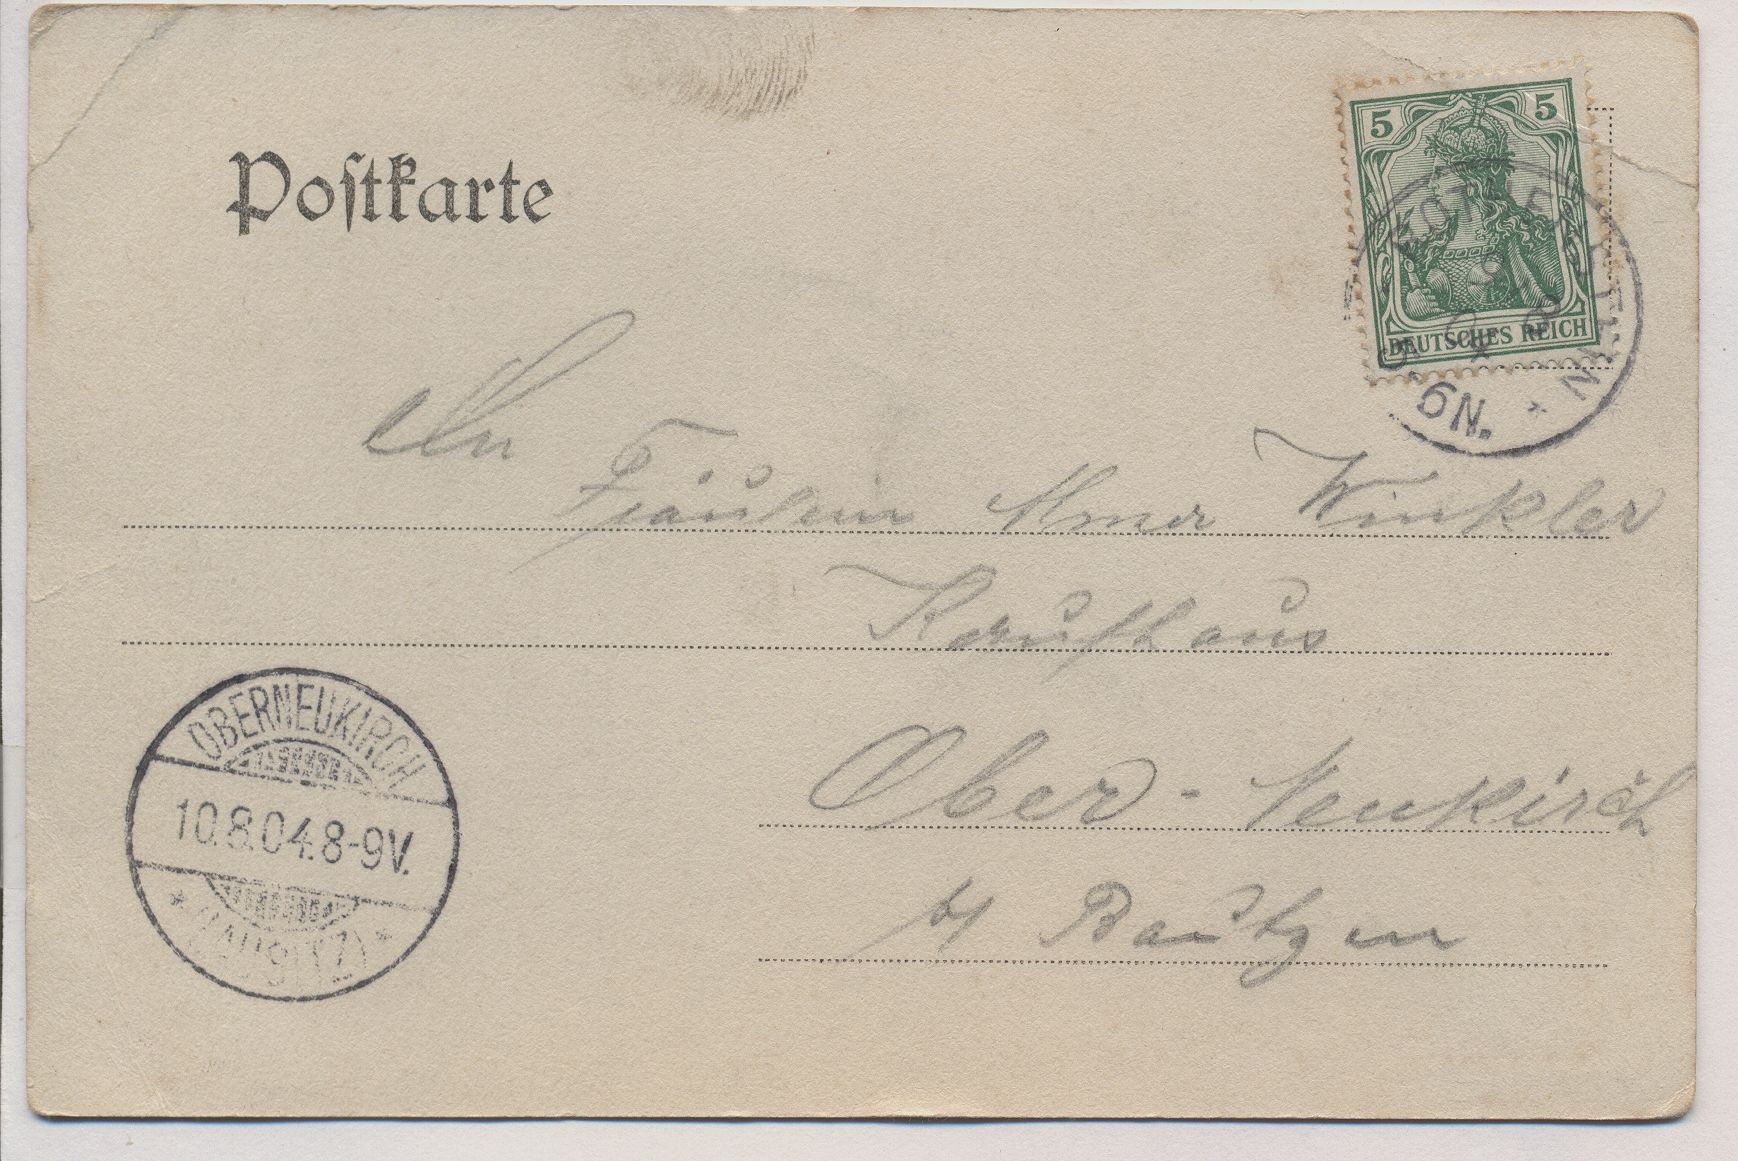 Postkarte
5 5
DEUTSCHES REICH
5-6N.
An
Fräulein Alma Winkler
Kaufhaus
Ober-Neukirch
b/ Bautzen
OBERNEUKIRCH
10.8.04.8-9V.
* (LAUSITZ) *